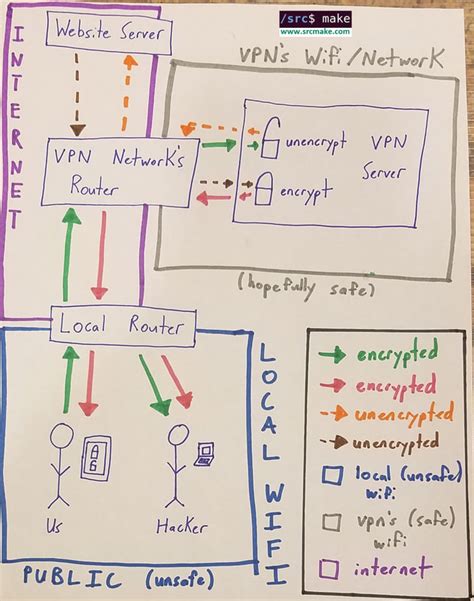 /src$ make
www.srcmake.com
INTERNET
Website Server
VPN's Wifi/Network
VPN Network's
Router
unencrypt
encrypt
VPN
Server
(hopefully safe)
Local Router
LOCAL WIFI
Us
Hacker
PUBLIC (unsafe)
encrypted
encrypted
unencrypted
unencrypted
local (unsafe)
wifi
vpn's (safe)
wifi
internet